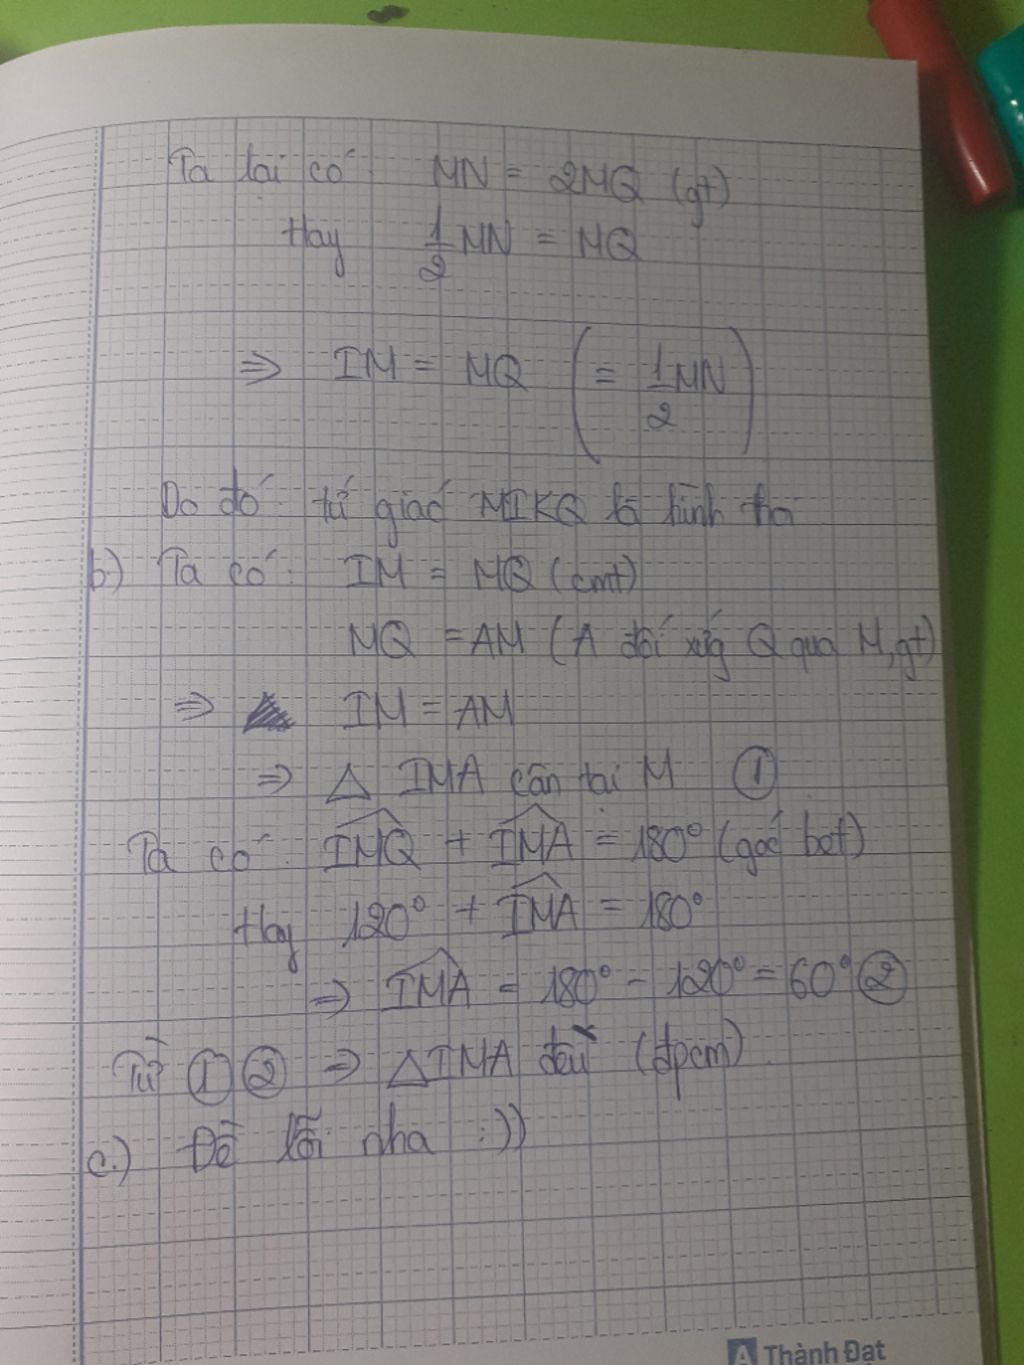 Ta lại có: MN = 2MQ (gt)
Hay 1/2 MN = MQ
⇒ IM = MQ (= 1/2 MN)
Do đó: tứ giác MIKQ là hình thoi
b.) Ta có: IM = MQ (cmt)
MQ = AM (A đối xứng Q qua M, gt)
⇒ IM = AM
⇒ △ IMA cân tại M ①
Ta có: \widehat{IMQ} + \widehat{IMA} = 180° (góc bẹt)
Hay 120° + \widehat{IMA} = 180°
⇒ \widehat{IMA} = 180° - 120° = 60° ②
Từ ① ② ⇒ △IMA đều (đpcm).
c.) Đề lỗi nha :))
A Thành Đạt